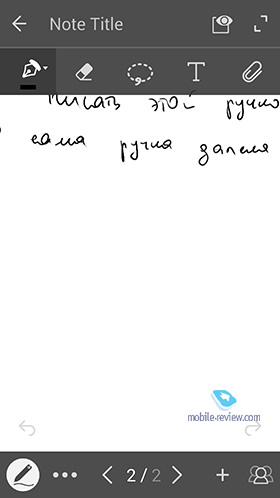 Note Title
T
писать этой ручко
сама ручка
mobile-review.com
2 / 2